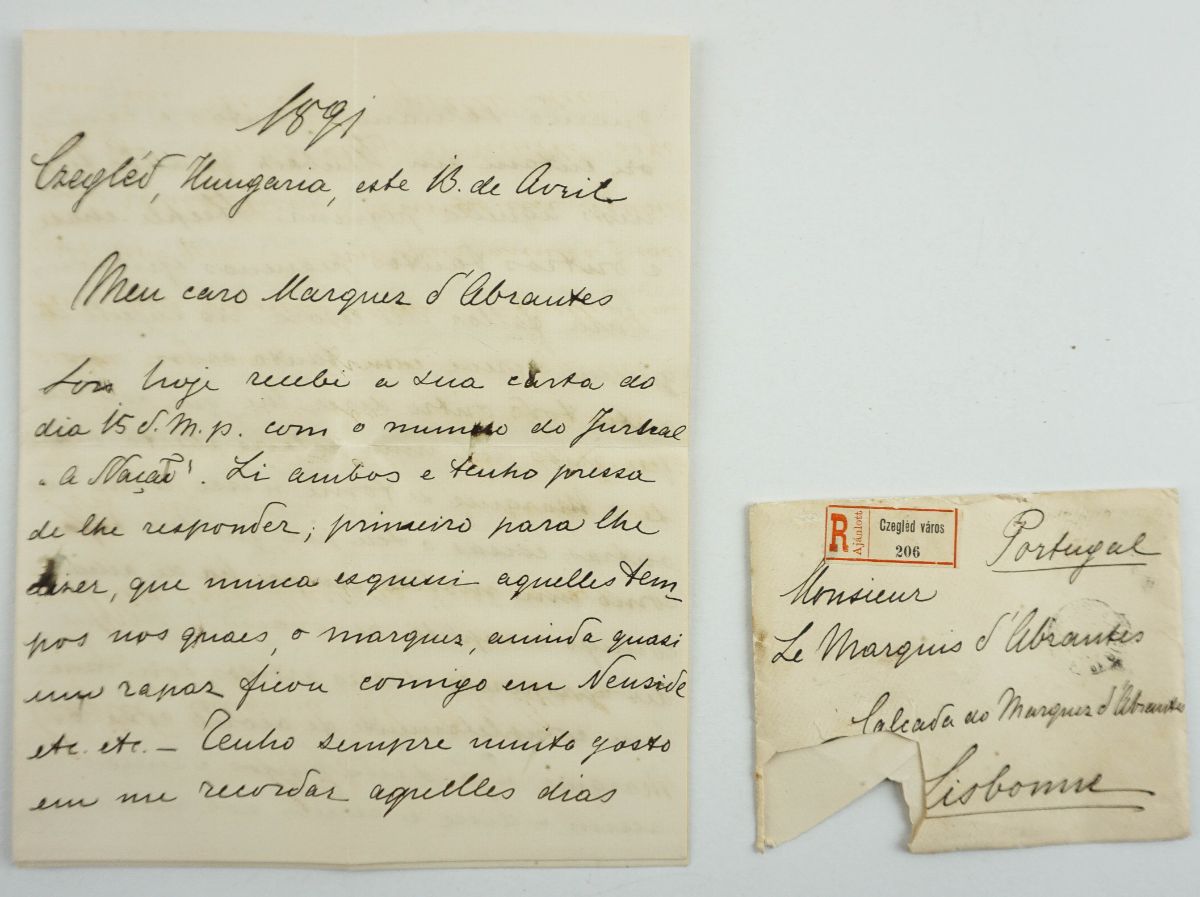 1891
Czegléd, Hungaria, este 13. de Avril
Meu caro Marquez d'Abrantes
hoje recebi a sua carta do
dia 15 d. M. p. com o numero do Jurnal
"A Nação". Li ambos e tenho pressa
de lhe responder; primeiro para lhe
dizer, que nunca esquesi aquelles tem-
pos nos quaes, o marquez, aninda quasi
um rapaz ficou comigo em
etc. etc. — Tenho sempre muito gosto
em me recordar aquelles dias
R
Ajánlott
Czegléd város
206
Portugal
Monsieur
Le Marquis d'Abrantes
Calcada do Marquez d'Abrantes
Lisbonne